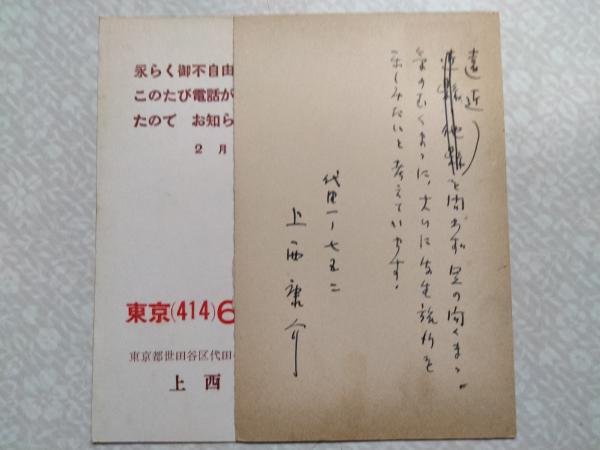 永らく御不自由
このたび電話が
たので お知ら
2月
東京(414)6
東京都世田谷区代田
上西
遠近)
を問わず 足の向くまゝ。
気のむくまゝに、大いに人生旅行を
楽しみたいと考えています。
代田一ノ七五二
上西康介